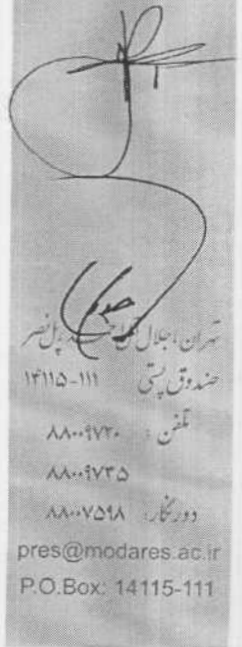 تهران، جلال آل احمد، پل نصر
صندوق پستی ۱۴۱۱۵-۱۱۱
تلفن: ۸۸۰۰۹۷۲۰
۸۸۰۰۹۷۳۵
دورنگار: ۸۸۰۰۷۵۹۸
pres@modares.ac.ir
P.O.Box: 14115-111